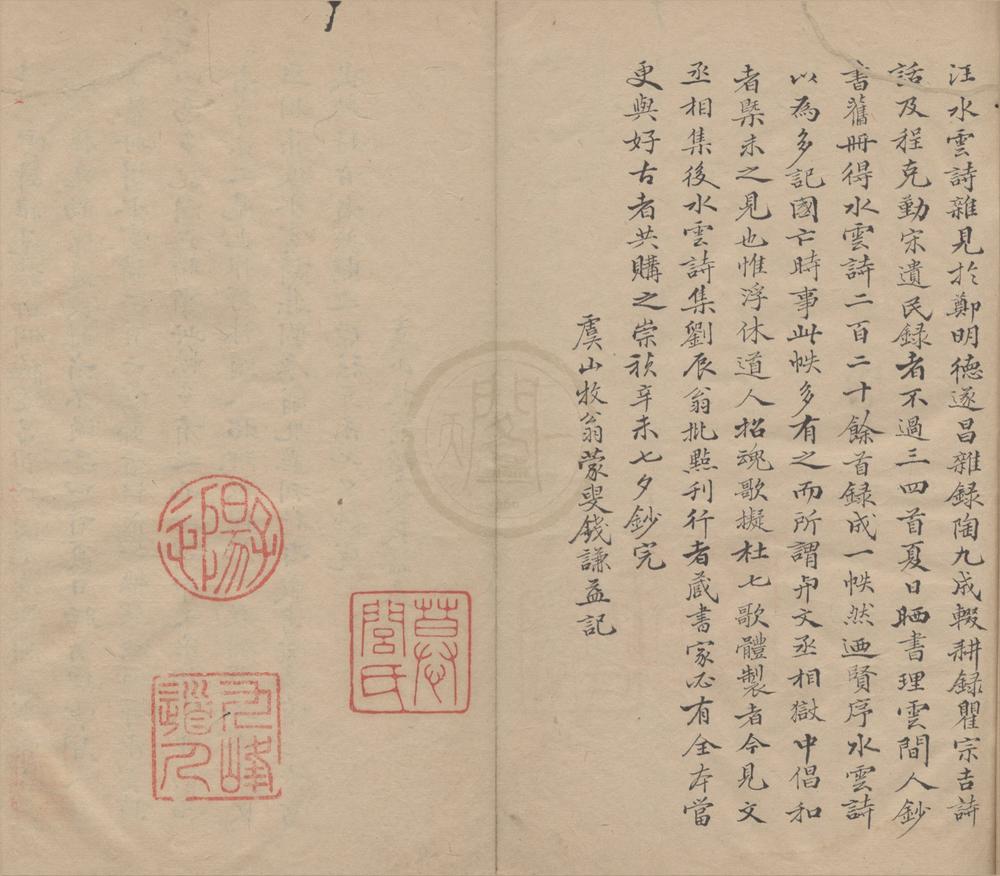 汪水雲詩雜見扵鄭明德遂昌雜録陶九成輟耕録瞿宗吉詩
話及程克勤宋遺民録者不過三四首夏日晒書理雲間人鈔
書舊冊得水雲詩二百二十餘首録成一帙然迺賢序水雲詩
以為多記國亡時事此帙多有之而所謂与文丞相獄中倡和
者槩未之見也惟浮休道人招魂歌擬杜七歌體製者今見文
丞相集後水雲詩集劉辰翁批點刊行者蔵書家必有全本當
更與好古者共購之崇禎辛未七夕鈔完
虞山牧翁蒙叟錢謙益記